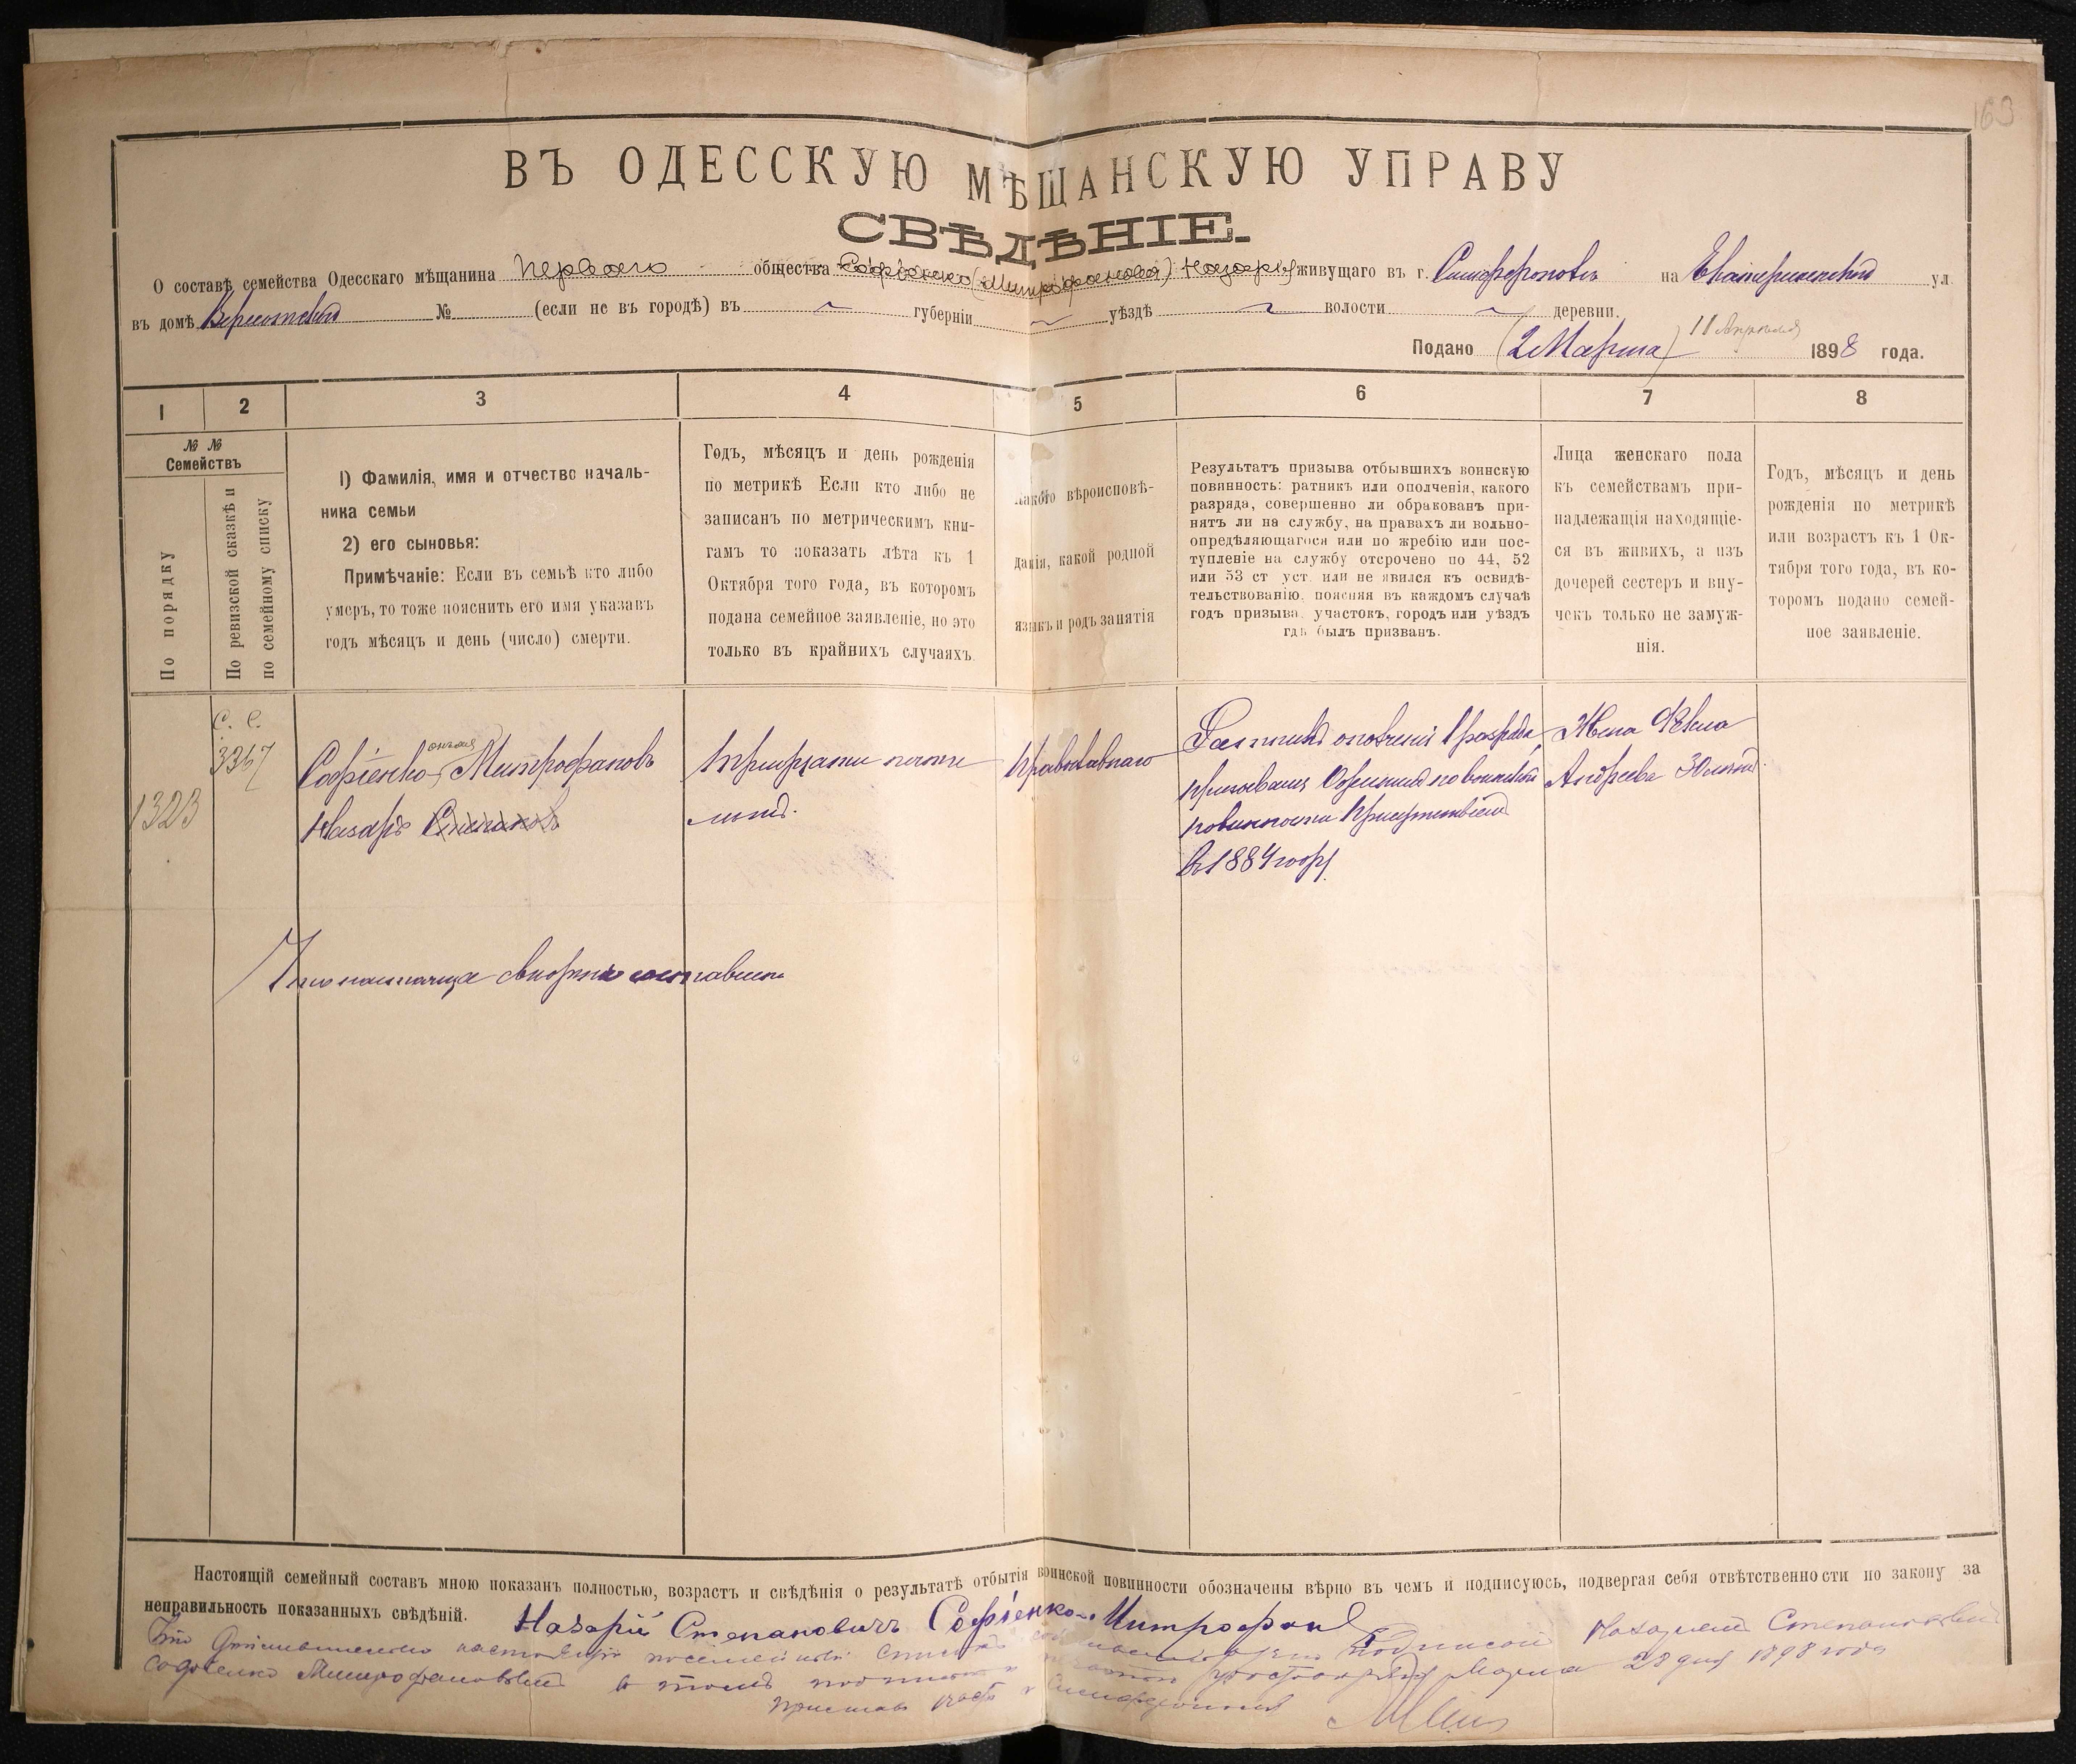 163
ВЪ ОДЕССКУЮ МѢЩАНСКУЮ УПРАВУ
СВѢДѢНІЕ.
О составѣ семейства Одесскаго мѣщанина перваго общества Софіенко (Митрофановъ) Назарій живущаго въ г. Симферополѣ на Екатерининской ул.
въ домѣ № (если не въ городѣ) въ губерніи уѣздѣ волости деревни.
Подано (2 Марта) 11 Апрѣля 1898 года.
1 2 3 4 5 6 7 8
№ №
Семействъ
По порядку
По ревизской сказкѣ и
по семейному списку
1) Фамилія, имя и отчество началь-
ника семьи
2) его сыновья:
Примѣчаніе: Если въ семьѣ кто либо
умеръ, то тоже пояснить его имя указавъ
годъ мѣсяцъ и день (число) смерти.
Годъ, мѣсяцъ и день рожденія
по метрикѣ Если кто либо не
записанъ по метрическимъ кни-
гамъ то показать лѣта къ 1
Октября того года, въ которомъ
подана семейное заявленіе, но это
только въ крайнихъ случаяхъ.
какого вѣроисповѣ-
данія, какой родной
языкъ и родъ занятія
Результатъ призыва отбывшихъ воинскую
повинность: ратникъ или ополченія, какого
разряда, совершенно ли обракованъ при-
нятъ ли на службу, на правахъ ли вольно-
опредѣляющагося или по жребію или пос-
тупленіе на службу отсрочено по 44, 52
или 53 ст уст. или не явился къ освидѣ-
тельствованію, поясняя въ каждомъ случаѣ
годъ призыва, участокъ, городъ или уѣздъ
гдѣ былъ призванъ.
Лица женскаго пола
къ семействамъ при-
надлежащія находящіе-
ся въ живихъ, а изъ
дочерей сестеръ и вну-
чекъ только не замуж-
нія.
Годъ, мѣсяцъ и день
рожденія по метрикѣ
или возрастъ къ 1 Ок-
тября того года, въ ко-
торомъ подано семей-
ное заявленіе.
С. С.
3367
1323
онъ же
Софіенко, Митрофановъ
Назарій Степановъ
тридцати пяти
лѣтъ.
Православнаго
Ратникъ ополченія I разряда
призывался Одесскимъ по воинской
повинности Присутствіемъ
въ 1884 году
Жена Фекла
Андреева 30 лѣтъ.
Настоящій семейный составъ мною показанъ полностью, возрастъ и свѣдѣнія о результатѣ отбытія воинской повинности обозначены вѣрно въ чемъ и подписуюсь, подвергая себя отвѣтственности по закону за
неправильность показанныхъ свѣдѣній. Назарій Степановичъ Софіенко Митрофановъ
Что настоящій посемейный списокъ подписанъ Назаріемъ Степановымъ
Софіенко Митрофановымъ в томъ Марта 28 дня 1898 года
Приставъ